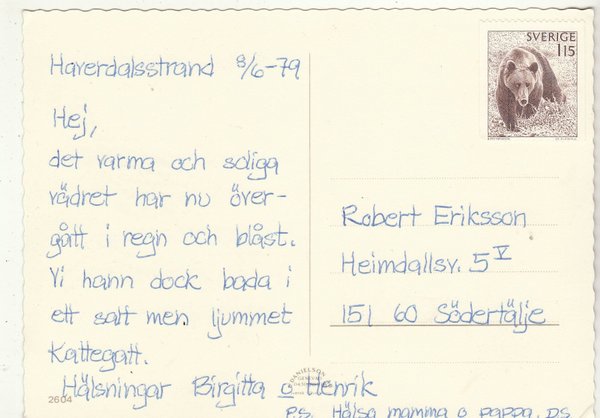 Haverdalsstrand 8/6-79
Hej,
det varma och soliga
vädret har nu över-
gått i regn och blåst.
Vi hann dock bada i
ett salt men ljummet
Kattegatt.
Hälsningar Birgitta o Henrik
P.S. Hälsa mamma o pappa. DS
SVERIGE
115
Robert Eriksson
Heimdallsv. 5 V
151 60 Södertälje
2604
DANIELSON